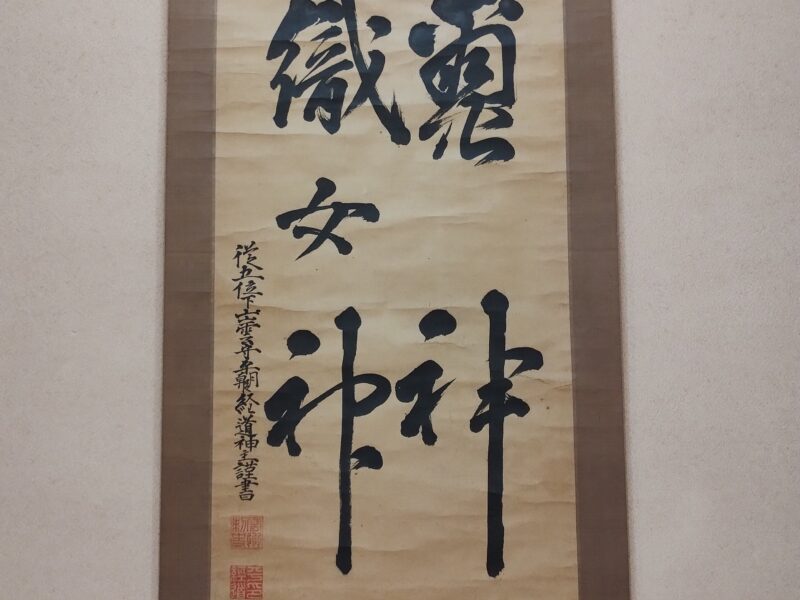 神
織女神
從五位下出雲守平朝臣経道神主謹書